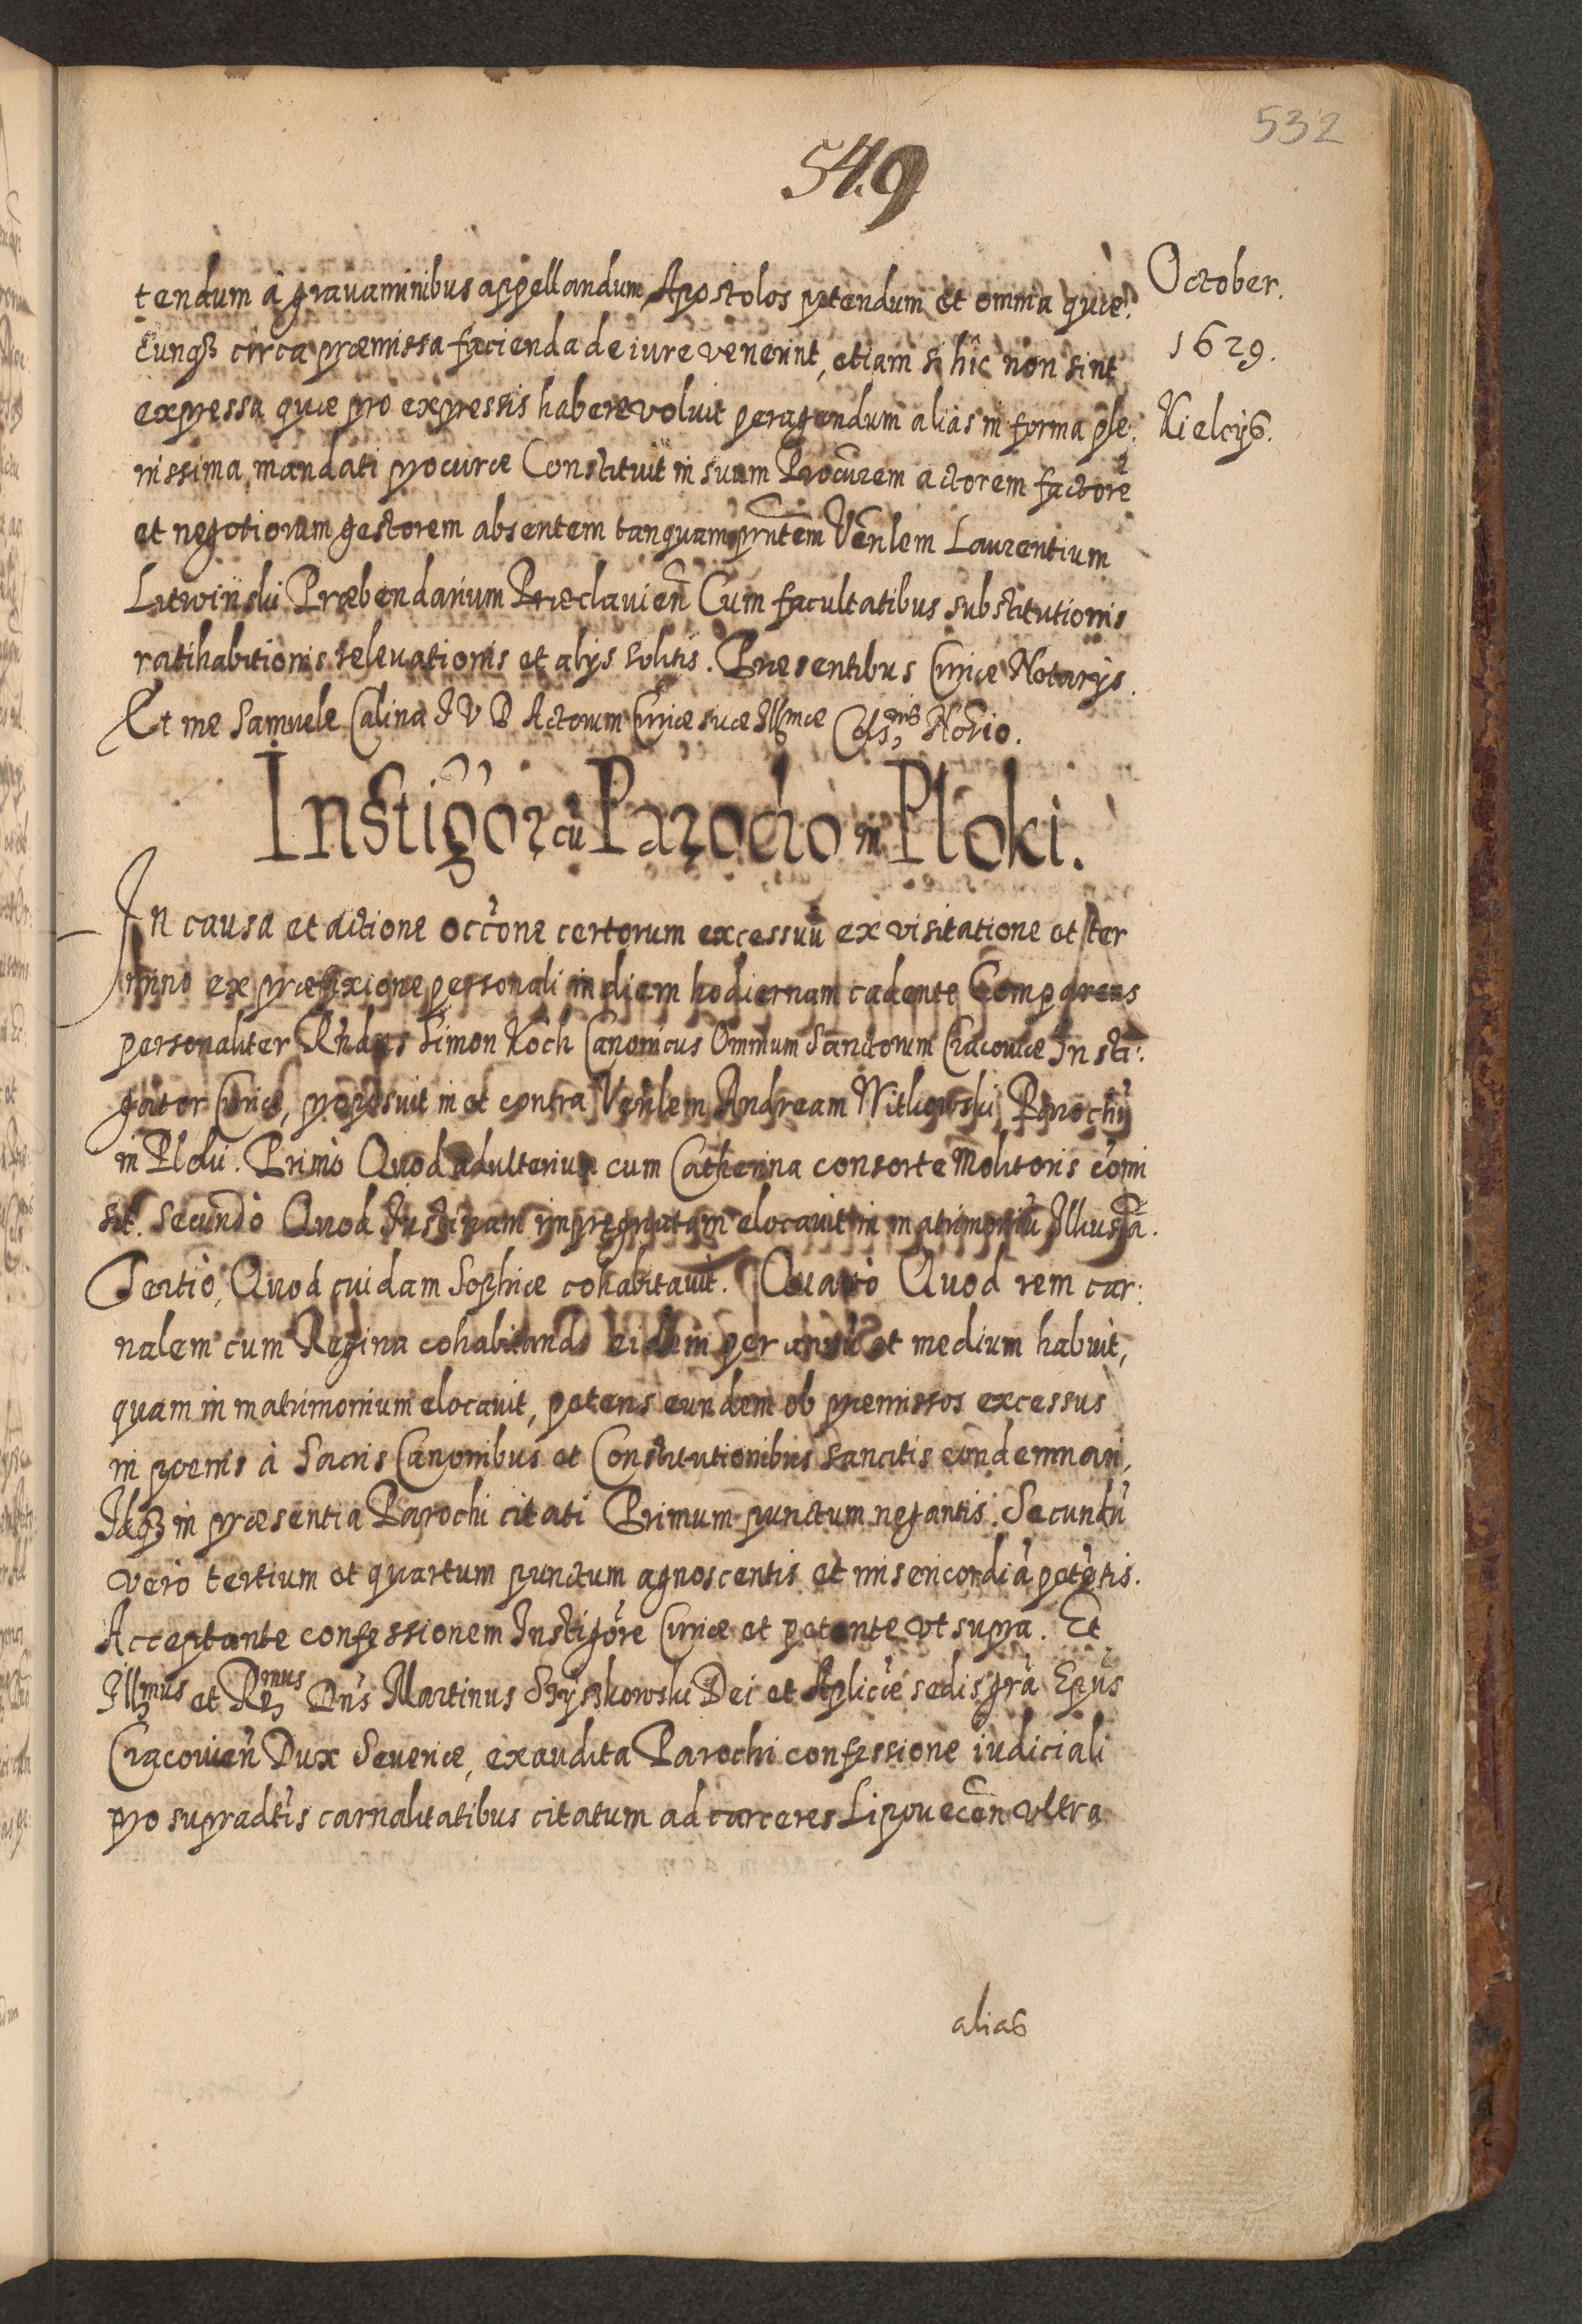 532
549
October.
1629.
Kielcijs.
tendum à grauaminibus appellandum, Apostolos petendum et omnia quæ:
cunqȝ circa præmissa facienda de iure venerint, etiam si hic non sint
expressa quæ pro expressis habere voluit peragendum aliàs in forma ple:
nissima mandati procuræ Constituit in suum Procurem actorem factorē
et negotiorum gestorem absentem tanquam pñtem Venlem Laurentium
Litwinski Præbendarium Præclauien̄ Cum facultatibus substitutionis
ratihabitionis releuationis et alijs solitis. Præsentibus Curiæ Notarijs.
Et me Samuele Calina I V D Actorum Curiæ suæ Illmæ Cels:nis Nōrio.
Instigor cū Parocho in Ploki.
In causa et actione occōne certorum excessuū ex visitatione et ter
mino ex præfixione personali in diem hodiernam cadente Comparens
personaliter Rńdus Simon Koch Canonicus Omnium Sanctorum Cracouiæ Insti:
gator Curiæ, proposuit in et contra Venlem Andream Witkowski Parochū
in Ploki. Primò Quod adulterium cum Catherina consorte Molitoris comi
sit. Secundò Quod Justinam impregnatam elocauit in matrimoniū
Tertiò, Quod cuidam Sophiæ cohabitauit. Quartò Quod rem car:
nalem cum Regina cohabitando eidem per annū et medium habuit,
quam in matrimonium elocauit, petens eundem ob præmissos excessus
in poenis à Sacris Canonibus et Constitutionibus sancitis condemnari,
Idqȝ in præsentia Parochi citati Primum punctum negantis. Secundū
verò tertium et quartum punctum agnoscentis et misericordiā petētis.
Acceptante confessionem Instigōre Curiæ et petente vt supra. Et
Illmus et Rmus Dn̄s Martinus Szyszkowski Dei et Aplicæ sedis grā Epūs
Cracouien̄ Dux Seueriæ, exaudita Parochi confessione iudiciali
pro supradtis carnalitatibus citatum ad carceres Lipouecen̄ vltra
alias